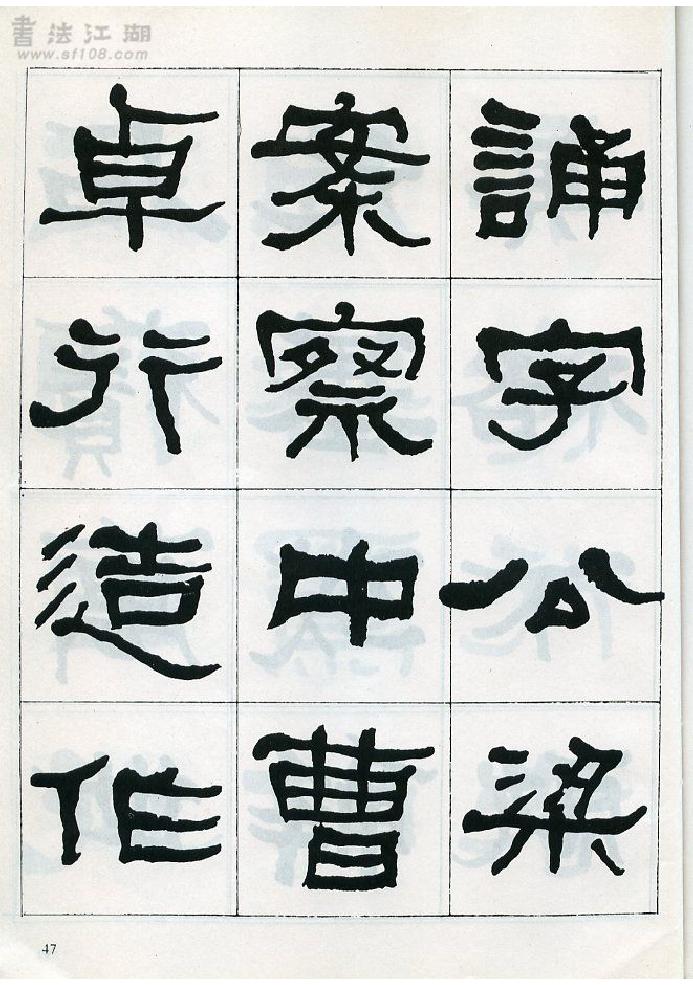 書法江湖
www.sf108.com
誦字公梁
案察中曹
卓行造作
47